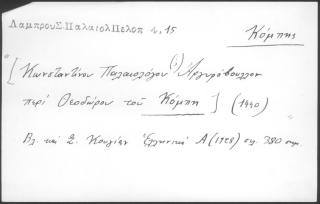 Λαμπρου Σ. Παλαιολ Πελοπ 4, 15
Κόμπης
[Κωνσταντίνου Παλαιολόγου (;) Ἀργυρόβουλλον
περί Θεοδώρου τοῦ Κόμπη] (1440)
Βλ. καί Σ. Κουγέαν Ἑλληνικά Α (1928) σ. 380